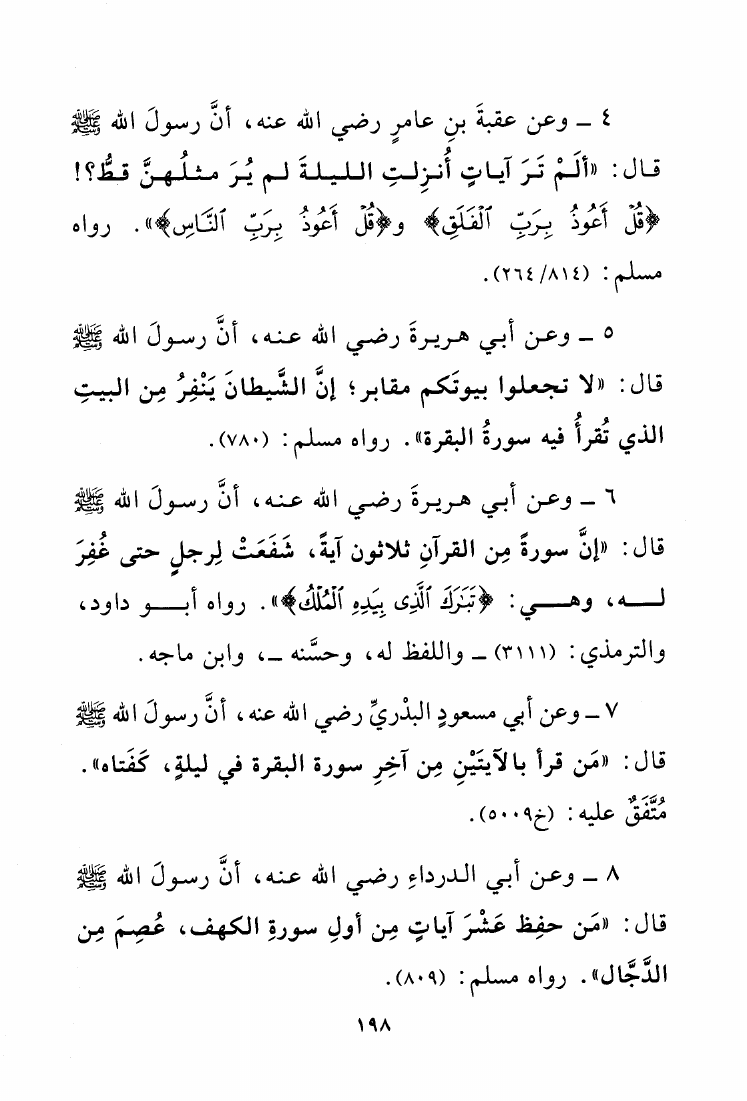 ٤ ـ وعن عقبةَ بنِ عامرٍ رضي الله عنه، أنَّ رسولَ الله ﷺ
قال: «ألَمْ تَرَ آياتٍ أُنزِلتِ الليلةَ لم يُرَ مثلُهنَّ قطُّ؟!
﴿قُلۡ أَعُوذُ بِرَبِّ ٱلۡفَلَقِ﴾ و﴿قُلۡ أَعُوذُ بِرَبِّ ٱلنَّاسِ﴾». رواه
مسلم: (٢٦٤/٨١٤).
٥ ـ وعن أبي هريرةَ رضي الله عنه، أنَّ رسولَ الله ﷺ
قال: «لا تجعلوا بيوتَكم مقابر؛ إنَّ الشَّيطانَ يَنْفِرُ مِن البيتِ
الذي تُقرأُ فيه سورةُ البقرة». رواه مسلم: (٧٨٠).
٦ ـ وعن أبي هريرةَ رضي الله عنه، أنَّ رسولَ الله ﷺ
قال: «إنَّ سورةً مِن القرآنِ ثلاثون آيةً، شَفَعَتْ لِرجلٍ حتى غُفِرَ
لـه، وهـي: ﴿تَبَٰرَكَ ٱلَّذِى بِيَدِهِ ٱلۡمُلۡكُ﴾». رواه أبـو داود،
والترمذي: (٣١١١) ـ واللفظ له، وحسَّنه ـ، وابن ماجه.
٧ ـ وعن أبي مسعودٍ البدْريِّ رضي الله عنه، أنَّ رسولَ الله ﷺ
قال: «مَن قرأ بالآيتَيْنِ مِن آخِرِ سورة البقرة في ليلةٍ، كَفَتاه».
مُتَّفَقٌ عليه: (خ٥٠٠٩).
٨ ـ وعن أبي الدرداءِ رضي الله عنه، أنَّ رسولَ الله ﷺ
قال: «مَن حفِظ عَشْرَ آياتٍ مِن أولِ سورةِ الكهف، عُصِمَ مِن
الدَّجَّال». رواه مسلم: (٨٠٩).
١٩٨